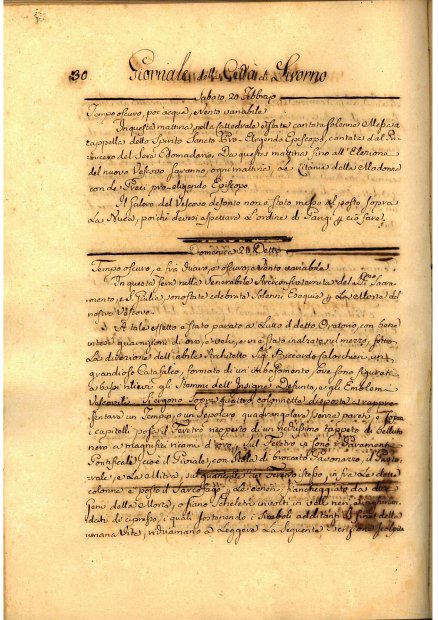 30 Giornale della Città di Livorno
Sabato 20 Febbrajo
Tempo oscuro, poc' acqua, e Vento variabile
In questa mattina nella Cattedrale è stata cantata solenne Messa a
Cappella dello Spirito Sancto Pro-Eligendo Episcopo, cantata dal
Da questa mattina sino all'Elezione
del nuovo Vescovo saranno, ogni mattina, Le Litanie della Madonna
con Le Preci pro-eligendo Episcopo.
Il del Vescovo defonto non è stato messo al posto sopra
La poiché devesi aspettare L'ordine di Parigi p ciò fare.
Domenica 21 Detto
Tempo oscuro, e oscuro, e Vento variabile
In questa sera nella Venerabile Arciconfraternita del Sacra-
mento, e S. Giulia, sono state celebrata Solenni Esequie p La Morte del
nostro Vescovo.
A tale effetto è stato parato a Lutto il detto Oratorio, con
guarnizioni di oro, e veli, e vi è stato inalzato nel mezzo, sotto
La direzione dell'abile Architetto Sig. Riccardo un
grandioso Catafalco, formato di un ove sono figurate
a bassi rilievi gli Stemmi dell'Insigne Defunto, e gli Emblemi
Vescovili. Sorgono Sopra quattro colonnette disposte a rappre-
sentare un Tempio, o un Sepolcro, quadrangolare senza pareti, e Sopra
i capitelli posa il Feretro ricoperto di un ricchissimo tappeto di belluto
nero a magnifici ricami d'oro, Sul Feretro vi sono i Paramenti
Pontificali, cioè il Piviale, con Stola di broccato Pavonazzo, il Pasto-
rale, e La Mitra, sul istesso, infra Le dette
colonne è posto il Sarcofago p Le ceneri, fiancheggiato da due
Geni della Morte, o siano Scheletri involti in
dati di cipresso, i quali sostenendo i Simboli additanti il fine della
umana Vita, richiamano a Leggere La Seguente Iscrizione scolpita